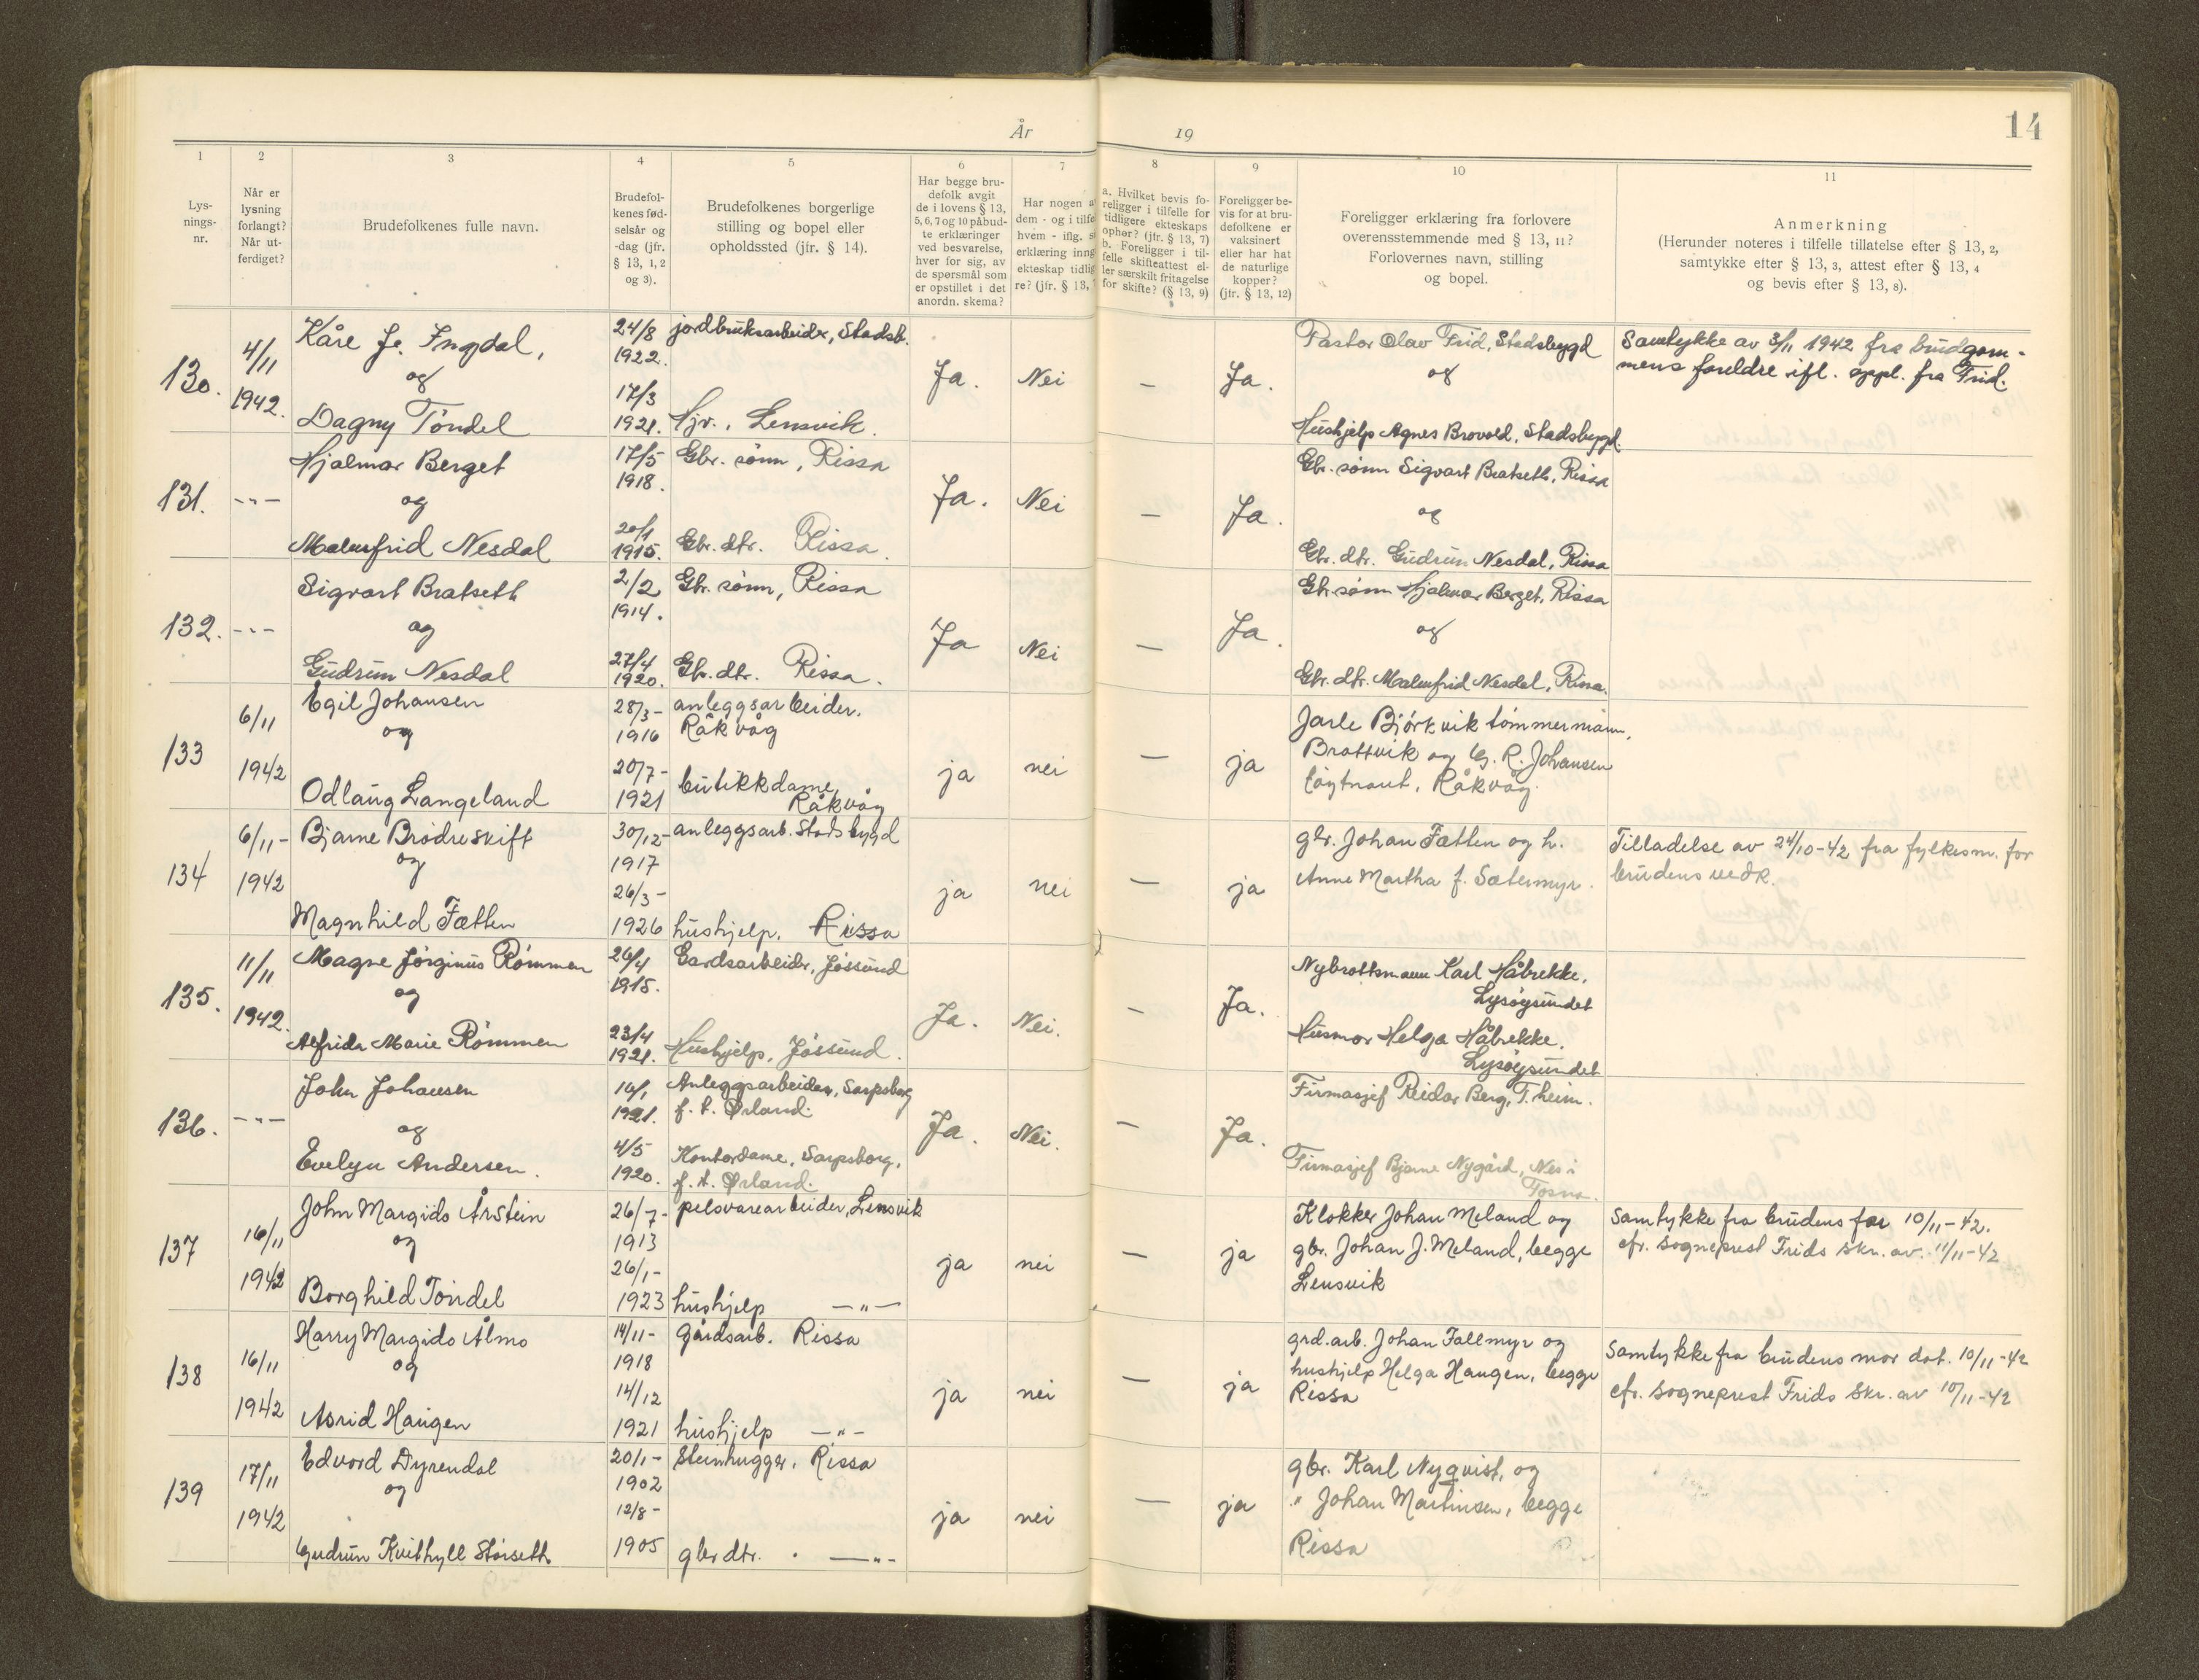 14
År 19
1 2 3 4 5 6 7 8 9 10 11
Lys-
nings-
nr.
Når er
lysning
forlangt?
Når ut-
ferdiget?
Brudefolkenes fulle navn.
Brudefol-
kenes fød-
selsår og
-dag (jfr.
§ 13, 1, 2
og 3).
Brudefolkenes borgerlige
stilling og bopel eller
opholdssted (jfr. § 14).
Har begge bru-
defolk avgit
de i lovens § 13,
5, 6, 7 og 10 påbud-
te erklæringer
ved besvarelse,
hver for sig, av
de spørsmål som
er opstillet i det
anordn. skema?
Har nogen a
dem - og i tilfe
hvem - iflg. s
erklæring inng
ekteskap tidlig
re? (jfr. § 13,
a. Hvilket bevis fo-
religger i tilfelle for
tidligere ekteskaps
ophør? (jfr. § 13, 7)
b. Foreligger i til-
felle skifteattest el-
ler særskilt fritagelse
for skifte? (§ 13, 9)
Foreligger be-
vis for at bru-
defolkene er
vaksinert
eller har hat
de naturlige
kopper?
(jfr. § 13, 12)
Foreligger erklæring fra forlovere
overensstemmende med § 13, 11?
Forlovernes navn, stilling
og bopel.
Anmerkning
(Herunder noteres i tilfelle tillatelse efter § 13, 2,
samtykke efter § 13, 3, attest efter § 13, 4
og bevis efter § 13, 8).
130.
4/11
1942.
Kåre Jr. Ingdal,
og
Dagny Tøndel
24/8
1922.
17/3
1921.
jordbruksarbeider, Stadsb.
Hjv., Lensvik.
Ja.
Nei
—
Ja.
Pastor Olav Frid, Stadsbygd
og
Hushjelp Agnes Brovold, Stadsbygd.
Samtykke av 3/11 1942 fra brudgom-
mens foreldre ifl. oppl. fra Frid.
131.
-"-
Hjalmar Berget
og
Malmfrid Nesdal
17/5
1918.
20/1
1915.
Gbr. sønn, Rissa
Gbr. dtr. Rissa.
Ja.
Nei
—
Ja.
Gbr. sønn Sigvart Bratseth, Rissa
og
Gbr. dtr. Gudrun Nesdal, Rissa
132.
-"-
Sigvart Bratseth
og
Gudrun Nesdal
2/2
1914.
27/4
1920.
Gbr. sønn, Rissa
Gbr. dtr. Rissa.
Ja
Nei
—
Ja.
Gbr. sønn Hjalmar Berget, Rissa
og
Gbr. dtr. Malmfrid Nesdal, Rissa.
133
6/11
1942
Egil Johansen
og
Odlaug Langeland
28/3-
1916
20/7-
1921
anleggsarbeider.
Råkvåg
butikkdame,
Råkvåg
ja
nei
—
ja
Jarle Bjørkvik tømmermann,
Brattvik og G. R. Johansen
løytnant, Råkvåg.
134
6/11-
1942
Bjarne Brødreskift
og
Magnhild Fætten
30/12-
1917
26/3-
1926
anleggsarb. Stadsbygd
hushjelp. Rissa
ja
nei
—
ja
gbr. Johan Fætten og h.
Anne Martha f. Sætermyr.
Tilladelse av 24/10-42 fra fylkesm. for
brudens vedk.
135.
11/11
1942.
Magne Jørginus Rømmen
og
Alfrida Marie Rømmen
26/4
1915.
23/4
1921.
Gardsarbeider, Jøssund
Hushjelp, Jøssund.
Ja.
Nei.
—
Ja.
Nybrottsmann Karl Håbrekke.
Lysøysundet
Husmor Helga Håbrekke.
Lysøysundet
136.
-"-
John Johansen
og
Evelyn Andersen.
16/1
1921.
4/5
1920.
Anleggsarbeider, Sarpsborg
f. t. Ørland.
Kontordame, Sarpsborg,
f. t. Ørland.
Ja.
Nei.
—
Ja.
Firmasjef Reidar Berg, T.heim.
Firmasjef Bjarne Nygård, Nes i
Fosna.
137
16/11
1942
John Margido Årstein
og
Borghild Tøndel
26/7-
1913
26/1-
1923
pelsvarearbeider, Lensvik
hushjelp —"—
ja
nei
—
ja
Klokker Johan Meland og
gbr. Johan J. Meland, begge
Lensvik
Samtykke fra brudens far 10/11-42.
cfr. sogneprest Frids skr. av. 11/11-42
138
16/11
1942
Harry Margido Ålmo
og
Asrid Haugen
14/11-
1918
14/12
1921
gårdsarb. Rissa
hushjelp —"—
ja
nei
—
ja
grd.arb. Johan Fallmyr og
hushjelp Helga Haugen, begge
Rissa
Samtykke fra brudens mor dat. 10/11-42
cfr. sogneprest Frids skr. av 10/11-42
139
17/11
1942
Edvard Dyrendal
og
Gudrun Kvithyll Størseth
20/1-
1902
12/8-
1905
Steinhugger. Rissa
gbr dtr. —"—
ja
nei
—
ja
gbr. Karl Nyqvist, og
" Johan Martinsen, begge
Rissa